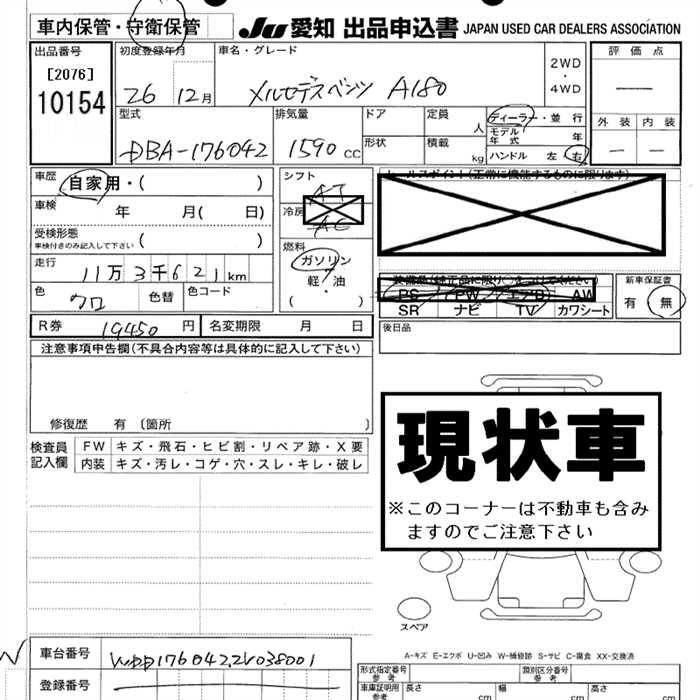 車内保管・守衛保管
JU 愛知 出品申込書 JAPAN USED CAR DEALERS ASSOCIATION
出品番号
[2076]
10154
初度登録年月
26 12月
車名・グレード
メルセデスベンツ A180
2WD
・
4WD
評価点
—
外装 内装
— —
型式
DBA-176042
排気量
1590 cc
ドア
形状
定員
人
積載
kg
ディーラー・並行
モデル年式 年
ハンドル 左 右
車歴
自家用・( )
車検 年 月( 日)
受検形態
車検付きのみ記入して下さい ( )
走行
11万3千621km
色
クロ
色替
色コード
シフト
AT
冷房
AC
燃料
ガソリン
軽・油
( )
セールスポイント(正常に機能するものに限ります)
装備品(純正品に限り、をつけてください)
PS PW エアB AW
SR ナビ TV カワシート
新車保証書
有 無
R券 19450 円
名変期限 月 日
後日品
注意事項申告欄(不具合内容等は具体的に記入して下さい)
修復歴 有 〔箇所 〕
検査員記入欄
FW キズ・飛石・ヒビ割・リペア跡・X要
内装 キズ・汚レ・コゲ・穴・スレ・キレ・破レ
現状車
※このコーナーは不動車も含み
ますのでご注意下さい
スペア
A-キズ E-エクボ U-凹み W-補修跡 S-サビ C-腐食 XX-交換済
車台番号
WDD1760422V038001
登録番号
形式指定番号
参考
類別区分番号
参考
車庫証明用
参考
長さ cm
幅 cm
高さ cm